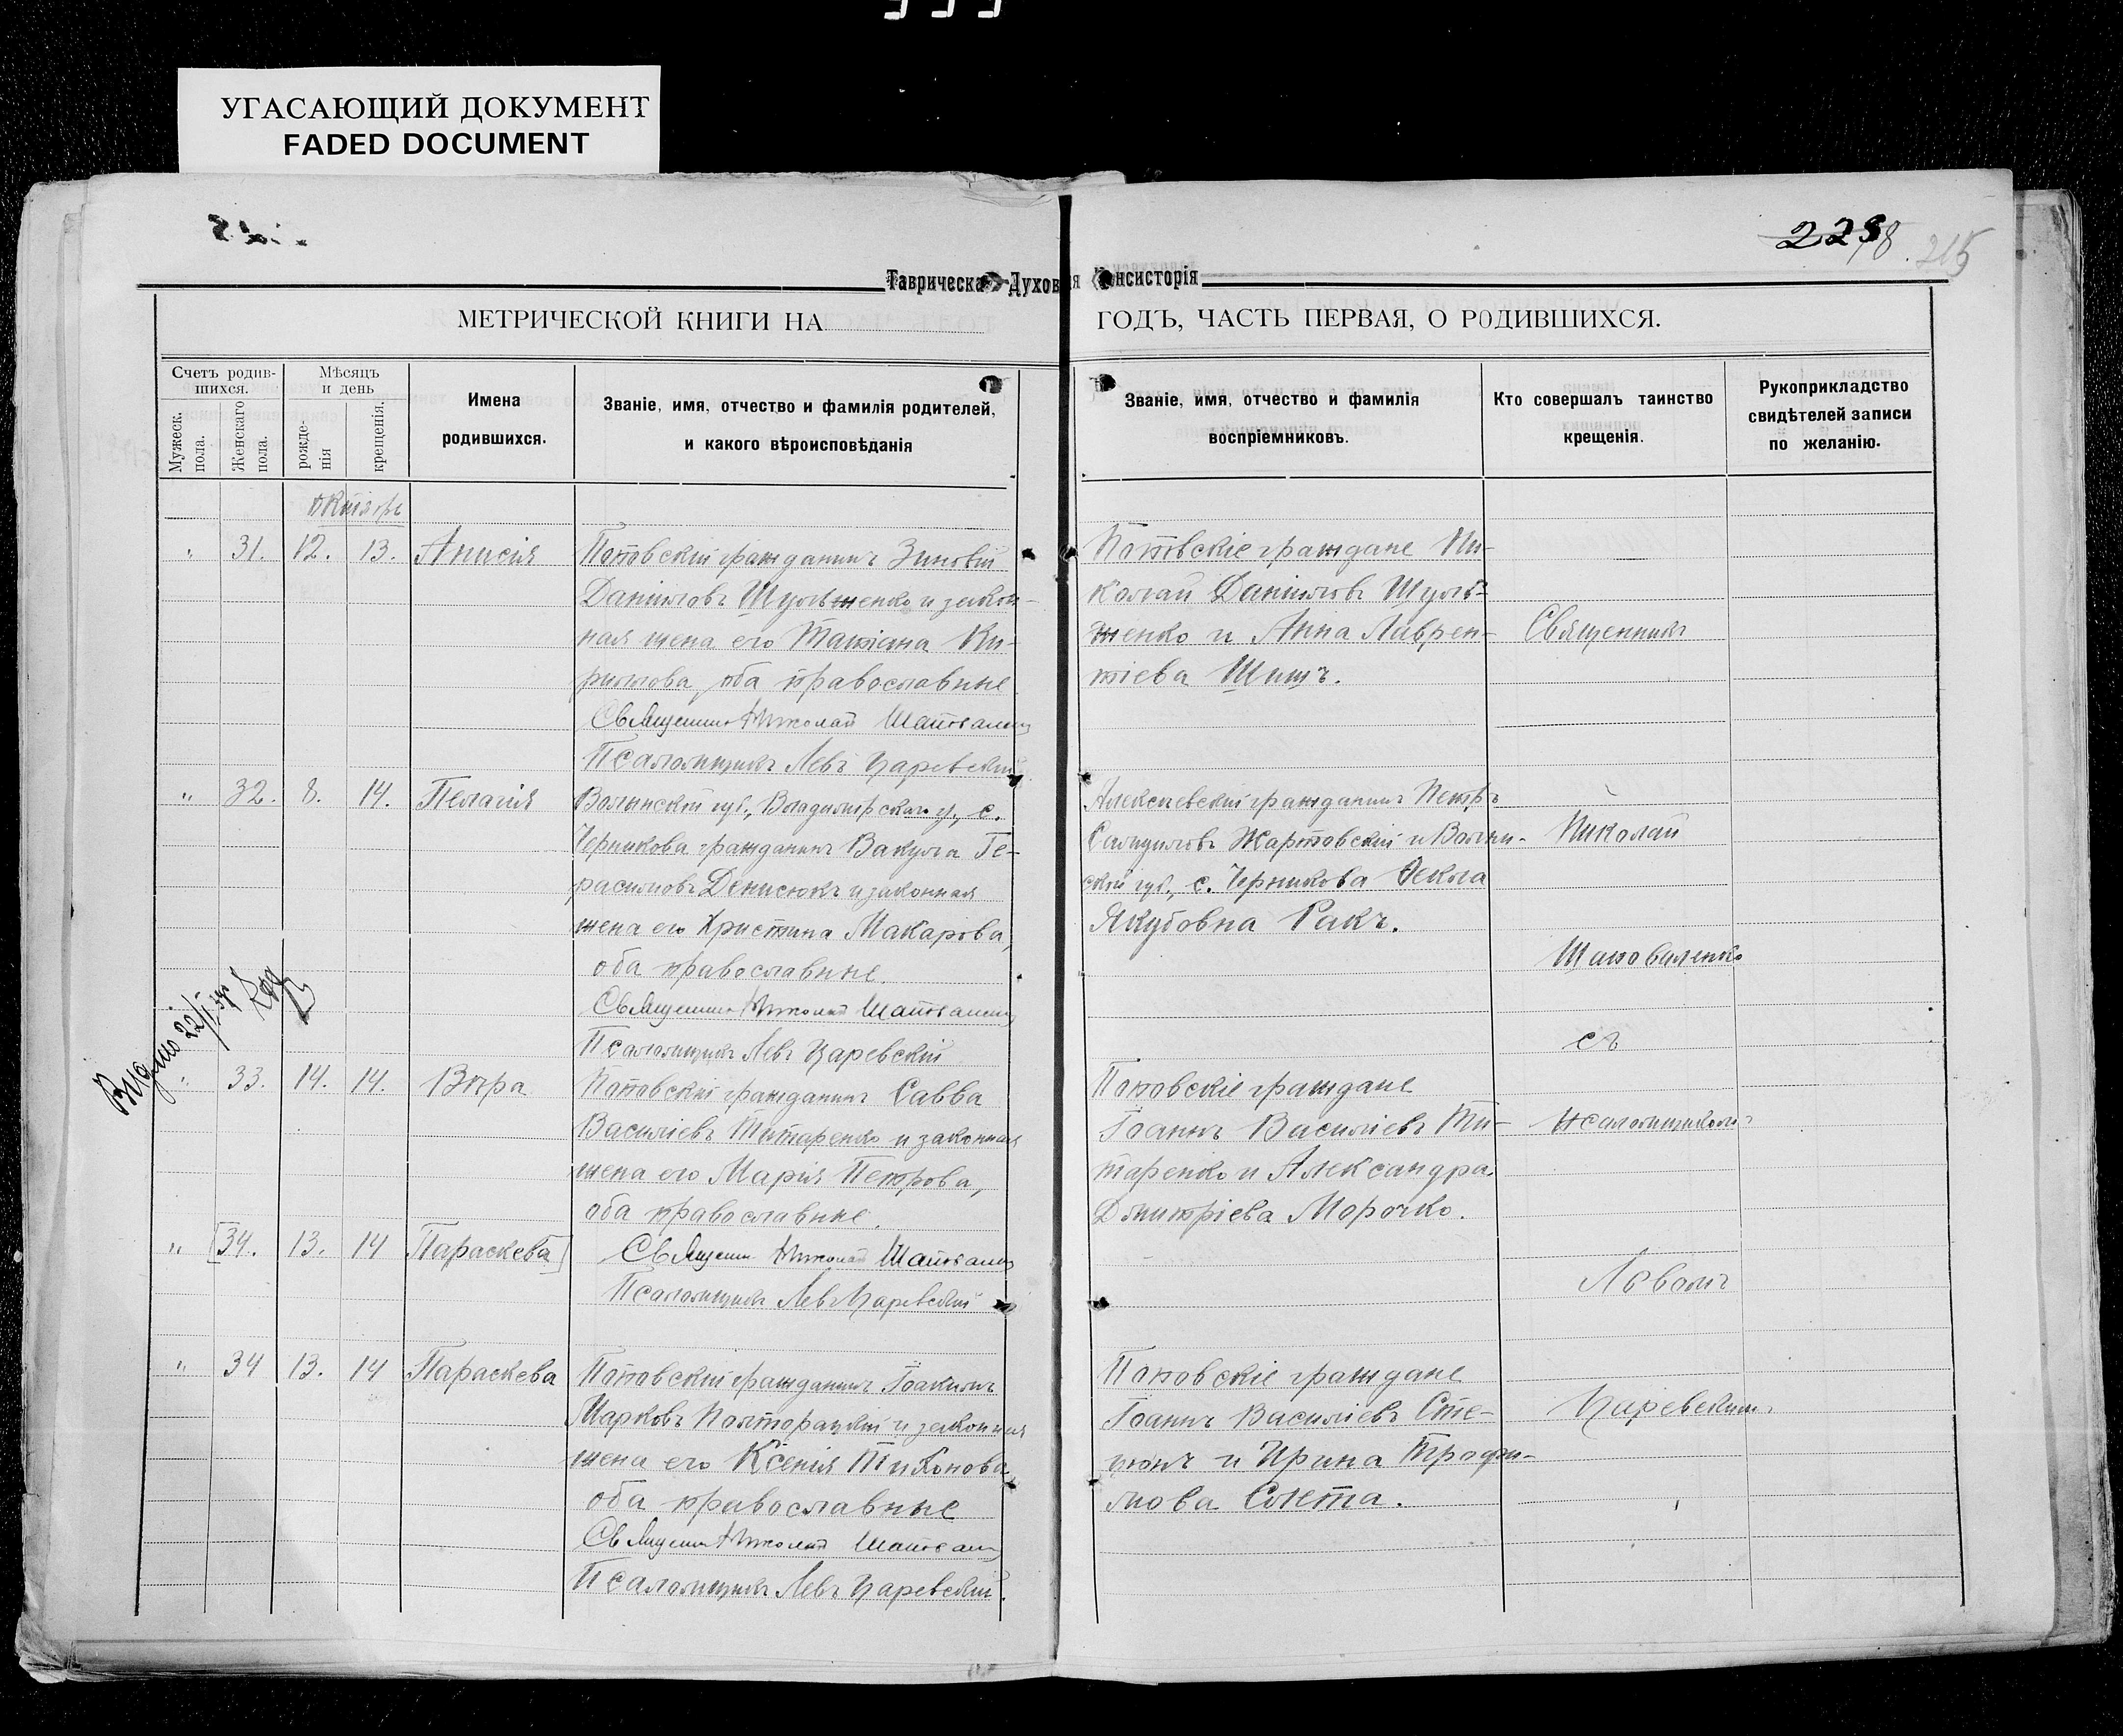 УГАСАЮЩИЙ ДОКУМЕНТ
FADED DOCUMENT
228
78. 215
Таврическа Духов я нсисторія
МЕТРИЧЕСКОЙ КНИГИ НА
ГОДЪ, ЧАСТЬ ПЕРВАЯ, О РОДИВШИХСЯ.
Счетъ родив-
шихся.
Мужеск.
пола.
Женскаго
пола.
Мѣсяцъ
и день
рожде-
нія
крещенія.
Имена
родившихся.
Званіе, имя, отчество и фамилія родителей,
и какого вѣроисповѣданія
Званіе, имя, отчество и фамилія
воспріемниковъ.
Кто совершалъ таинство
крещенія.
Рукоприкладство
свидѣтелей записи
по желанію.
Октябрь
" 31. 12. 13. Анисія
Поповскій гражданинъ Зиновій
Даніиловъ Шульженко и закон-
ная жена его Татіана Ки-
риллова, оба православные
Священникъ Николай Шаповаленко
Псаломщикъ Левъ Царевскій
Поповскіе граждане Ни-
колай Даніиловъ Шуль-
женко и Анна Лаврен-
тіева Шишъ.
" 32. 8. 14. Пелагія
Волынской губ., Владимірскаго у., с.
Черникова гражданинъ Вакула Ге-
расимовъ Денисюкъ и законная
жена его Христина Макарова,
оба православные.
Священникъ Николай Шаповаленко
Псаломщикъ Левъ Царевскій
Алексѣевскій гражданинъ Петръ
Жартовскій и Волын-
ской губ., с. Черникова Ѳекла
Якубовна Ракъ.
Выдано 22/I
" 33. 14. 14. Вѣра
Поповскій гражданинъ Савва
Василіевъ Титаренко и законная
жена его Марія Петрова,
оба православные.
Поповскіе граждане
Іоаннъ Василіевъ Ти-
таренко и Александра
Димитріева Морочко.
" [34. 13. 14 Параскева]
Священникъ Николай Шаповаленко
Псаломщикъ Левъ Царевскій
" 34 13. 14 Параскева
Поповскій гражданинъ Іоакимъ
Марковъ Полторацкій и законная
жена его Ксенія Тихонова,
оба православные
Священникъ Николай Шаповаленко
Псаломщикъ Левъ Царевскій.
Поповскіе граждане
Іоаннъ Василіевъ Сте-
цюкъ и Ирина Трофи-
мова Слета.
Священникъ
Николай
Шаповаленко
съ
псаломщикомъ
Львомъ
Царевскимъ